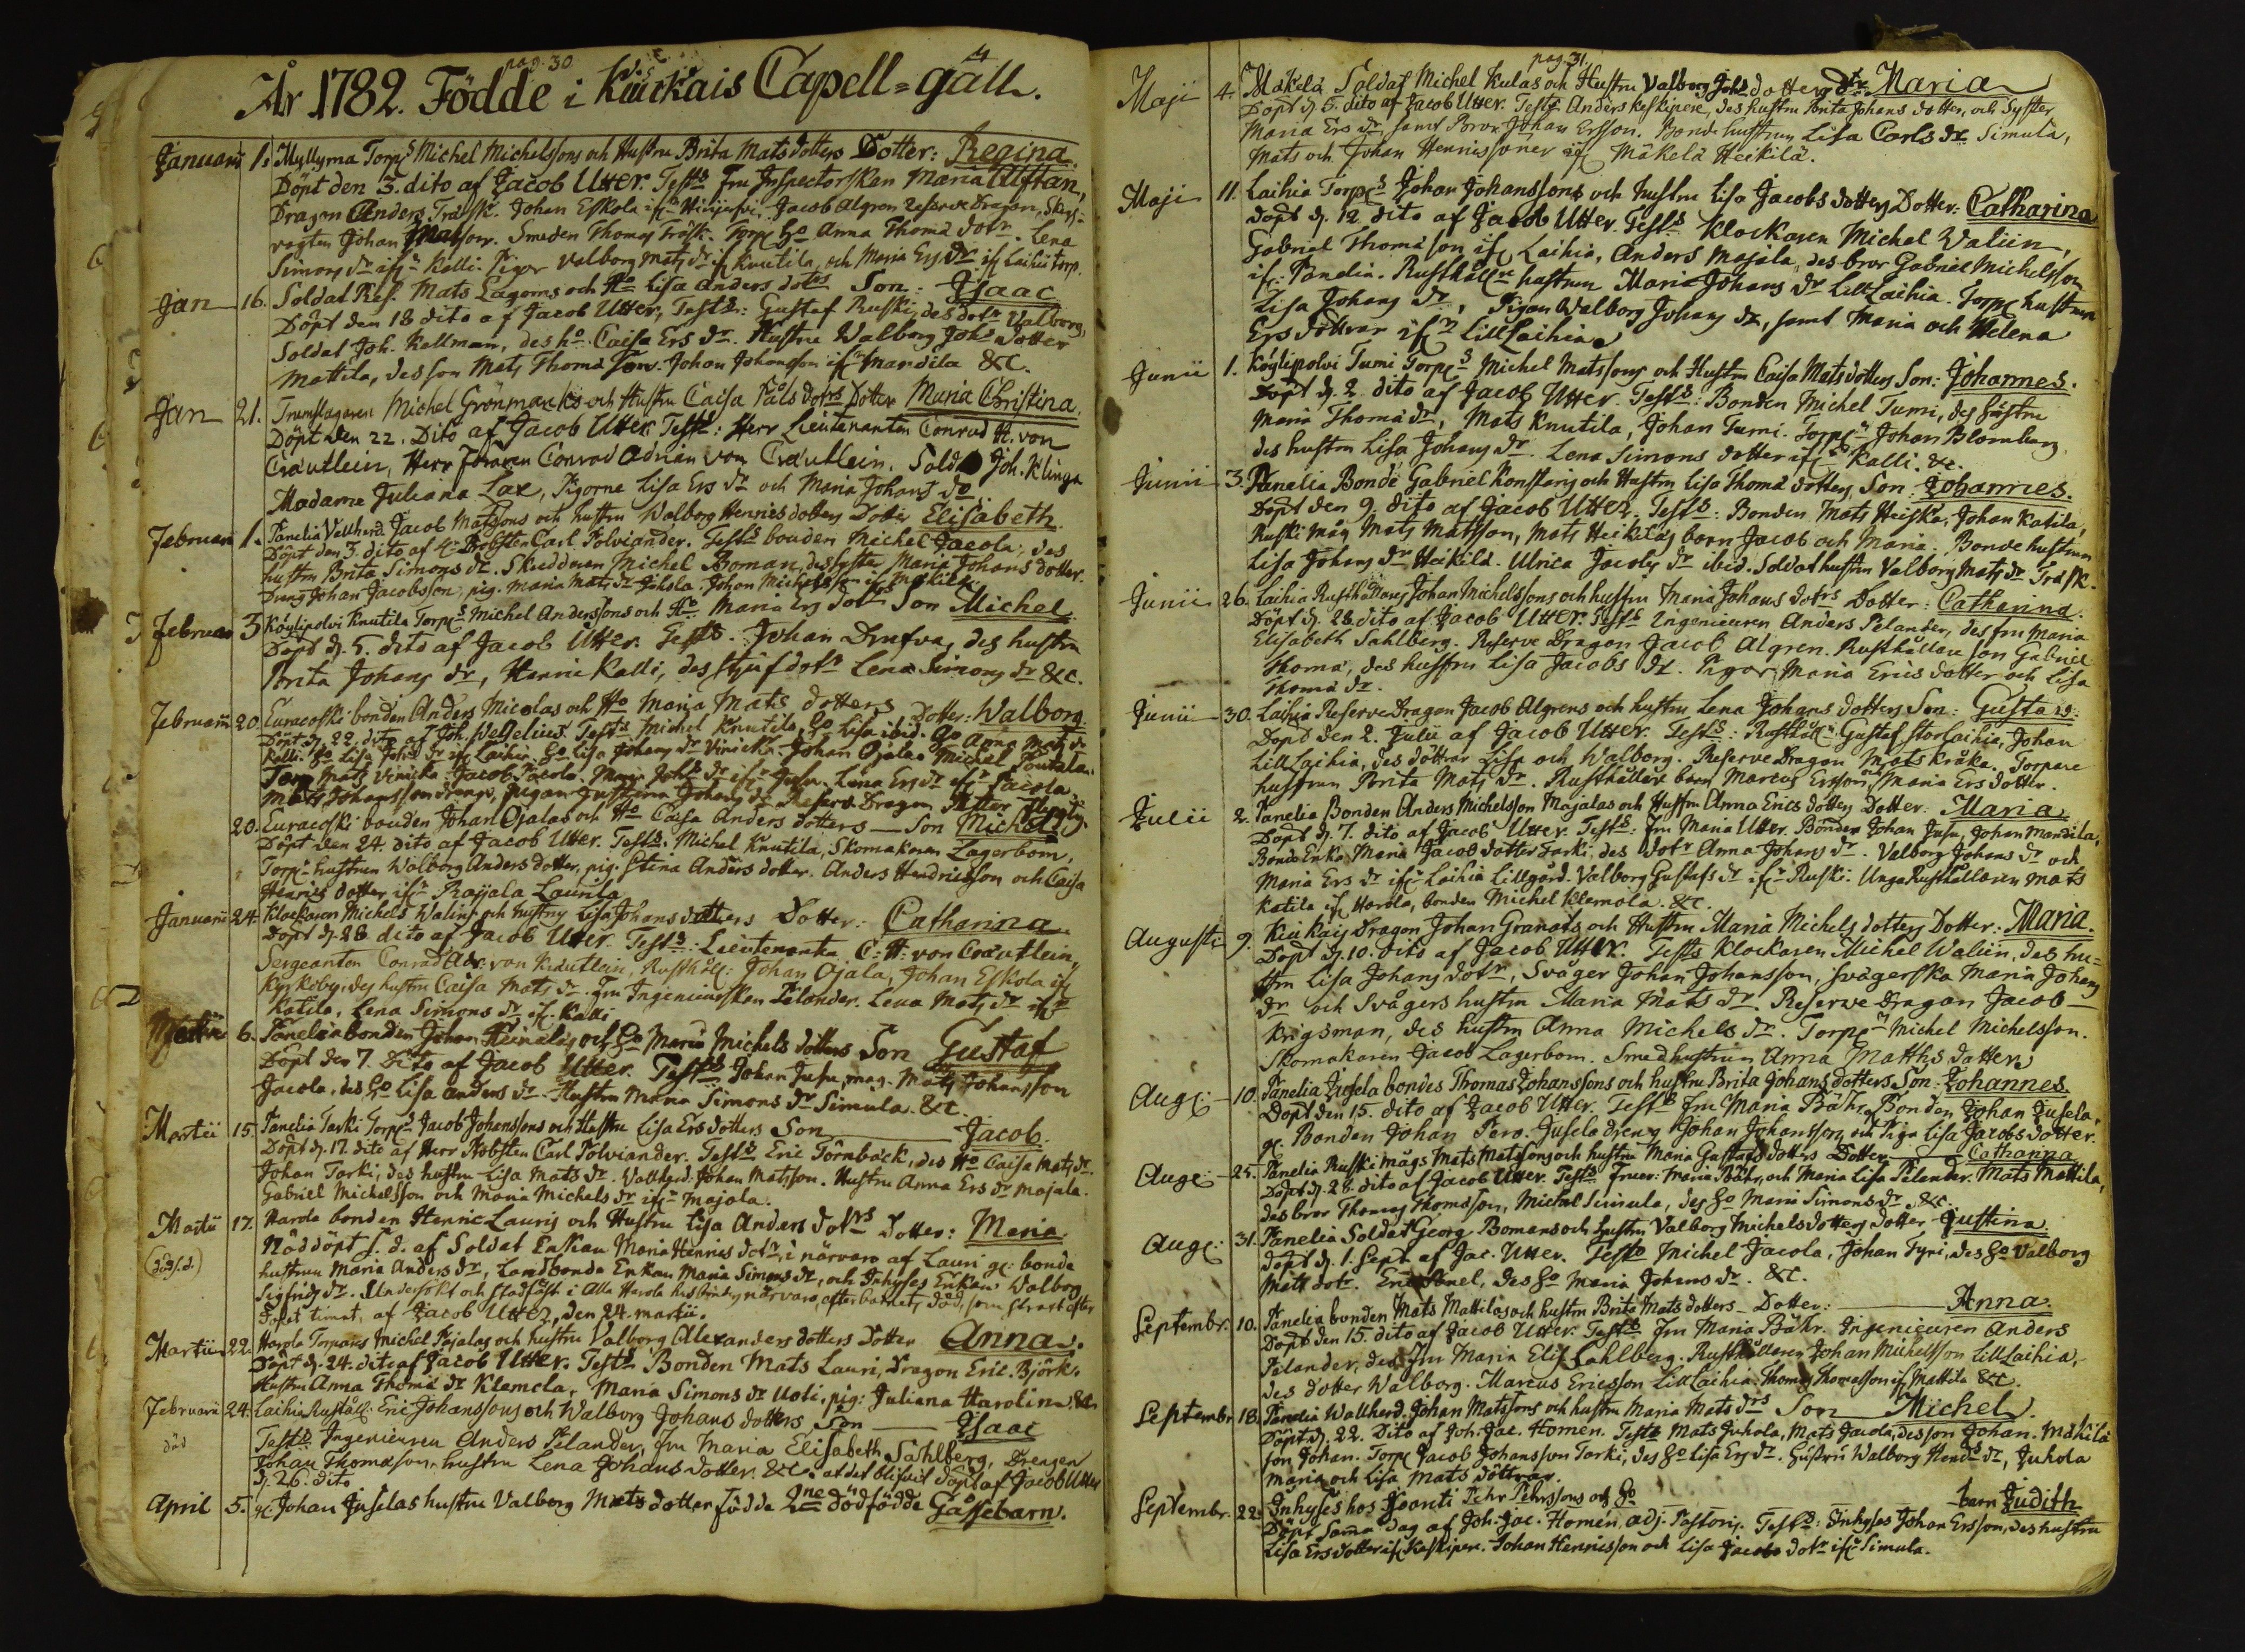 pag. 30
År 1782. Födde i Kiuckais Capell-gäll.
Januarii 1. Myllyma Torps Michel Michelssons och Hustru Brita Mats dotters Dotter: Regina.
Döpt den 3. dito af Jacob Utter. Tests Fru Inspectorskan Maria
Dragon Anders Träsk. Johan Eskola Jacob Algren Reserve Dragon,
Johan Matsson. Smeden Thomas Träsk. Anna Thoma dotr. Lena
Simons dr Kalli. Pigor Valborg Mats dr Knutila, och Maria Ers Dr if Laihia torp.
Jan 16. Soldat Mats Lagoms och Ho Lisa Anders dotrs Son: Isaac
Döpt den 18 dito af Jacob Utter, Tests: Gustaf Ruski, des dotr Valborg,
Soldat Joh. Kellman, des ho Caisa Ers dr. Hustru Walborg Johs dotter
Mattila, des son Mats Thoma Johan Johansson Mandila &c.
Jan 21. Trumslagaren Michel Grönmarks och Hustru Caisa Påls dotrs Dotter Maria Christina.
Döpt den 22. Dito af Jacob Utter. Tests: Herr Lieutenanten Conrad H. von
Creutlein, Herr Conrad Adrian von Creutlein. Sold Joh. Klinga
Madame Juliana Lax, Pigorne Lisa Ers dr och Maria Johans dr
Februari 1. Panelia Vallherd. Jacob Matssons och hustru Walborg Henrics dotters Dotter Elisabeth.
Döpt den 3. dito af Probsten Carl Polviander. Tests bonden Michel Jacola, des
hustru Brita Simons dr. Skräddaren Michel Boman, des syster Maria Johans dotter.
Dräng Johan Jacobsson, pig. Maria Mats dr Juhola. Johan Michelsson Mäkilä.
Februari 3 Köylipolvi Knutila Torps Michel Anderssons och Ho Maria Ers dotrs Son Michel.
Döpt d. 5. dito af Jacob Utter. Tests. Johan Drufva, des hustru
Brita Johans dr, Henric Kalli, des styfdotr Lena Simons dr &c.
Februarii 20 Euracoski bonden Anders Micolas och Ho Maria Mats dotters Dotter: Walborg.
Döpt d. 22. dito af Joh. Wegelius. Tests Michel Knutila, Ho Lisa ibid. Anna Mats dr
Kalli. Lisa Johs dr Laihia, Ho Lisa Johans dr Vinicka Johan Ojala, Michel
Mats Vinicka. Jacob Jacola. Maria Johs dr Lena Ers dr Jacola.
Mats Johansson dräng, pigan Justina Johans dr Reserve Dragon
20. Euracoski bonden Johan Ojalas och Ho Caisa Anders dotters — Son Michel
Döpt den 24. dito af Jacob Utter. Tests. Michel Knutila, Skomakaren Lagerbom,
Torp. hustrun Walborg Anders dotter, pig. Stina Anders dotter. Anders Hendricsson och Caisa
Henrics dotter Laurila
Januarii 24. Klockaren Michels Walins och hustrus Lisa Johans dotters Dotter: Catharina
Döpt d. 28 dito af Jacob Utter. Tests: Lieutenanten C: H: von Creutlein,
Sergeanten Conrad Adr: von Kreutlein, Johan Ojala, Johan Eskola
Kyrkoby, des hustru Caisa Mats dr. Fru Ingenieurskan Pelander. Lena Mats dr
Katila, Lena Simons dr if. Kalli
Martii 6. Panelia bonden Johan Heinälas och Ho Maria Michels dotters Son Gustaf
Döpt den 7. Dito af Jacob Utter. Tests Johan Jusu, måg. Mats Johansson
Jacola, des Ho Lisa Anders dr. Hustru Maria Simons dr Simula &c.
Martii 15. Panelia Tarki Torps Jacob Johanssons och Hustru Lisa Ers dotters Son — Jacob.
Döpt d. 17. dito af Herr Probsten Carl Polviander. Tests Eric Törnback, des Ho Caisa Mats dr.
Johan Tarki, des hustru Lisa Mats dr. Vallherd. Johan Matsson. Hustru Anna Ers dr Majala.
Gabriel Michelsson och Maria Michels dr Majala.
Martii 17. Harola bonden Henric Lauris och Hustru Lisa Anders dotrs Dotter: Maria.
Nöddöpt s. d. af Soldat Enkan Maria Henrics dotr, i närvaro af Lauri bonde
hustrun Maria Anders dr, Landbonde Enkan Maria Simons dr, och Inhyses Enkan Walborg
Sigfrids dr. Undersökt och stadfäst i Alla Harola hustrurs närvaro, efter barnets död, som strax efter
döpet timat, af Jacob Utter, den 24. martii.
Martii 22. Harola Torpares Michel Pijalas och hustru Valborg Alexanders dotters Dotter Anna.
Döpt d. 24. dito af Jacob Utter. Tests Bonden Mats Lauri, Dragon Eric Björk.
Hustru Anna Thoma dr Klemela, Maria Simons dr Uoti, pig: Juliana Harolin &c
Februarii 24. Laihia Rusthåll. Eric Johanssons och Walborg Johans dotters Son — Isaac
död
Tests Ingenieuren Anders Pelander, Fru Maria Elisabeth Sahlberg, Drengen
Johan Thomasson, hustru Lena Johans dotter &c. döpt af Jacob Utter
d. 26. dito
April 5. Johan Juselas hustru Valborg Mats dotter födde 2ne dödfödde Gåssebarn.
pag. 31.
Maji 4. Mäkelä Soldat Michel Kulas och Hustru Valborg Johs dotters dr Maria
Döpt d. 5. dito af Jacob Utter. Tests Anders Keskipere, des hustru Brita Johans dotter, och Syster
Maria Ers dr, samt Bror Johan Ersson. Bonde hustrun Lisa Carls dr Simula,
Mats och Johan Henrissoner Mäkelä Heikilä.
Maji 11. Laihia Torps Johan Johanssons och hustru Lisa Jacobs dotters Dotter: Catharina
döpt d. 12. dito af Jacob Utter. Tests Klockaren Michel Waliin,
Gabriel Thomasson if Laihia, Anders Majala, des bror Gabriel Michelsson
if. Panelia. Rusthållre hustrun Maria Johans dr LillLaihia. Torp hustrun
Lisa Johans dr, Pigan Walborg Johans dr, samt Maria och Helena
Ers döttrar LillLaihia
Junii 1. Köylipolvi Tumi Torps Michel Matssons och Hustru Caisa Mats dotters Son: Johannes.
Döpt d. 2. dito af Jacob Utter. Tests: Bonden Michel Tumi, des hustru
Maria Thoma dr, Mats Knutila, Johan Tumi. Torp Johan Blomberg
des hustru Lisa Johans dr. Lena Simons dotter Kalli. &c.
Junii 3. Panelia Bonde Gabriel Konstaris och Hustru Lisa Thoma dotters, Son: Johannes.
Döpt den 9. dito af Jacob Utter. Tests: Bonden Mats Heiska, Johan Katila,
Ruski måg Mats Matsson, Mats Heikiläs barn Jacob och Maria. Bonde hustrun
Lisa Johans dr Heikilä. Ulrica Jacobs dr ibid. Soldat hustru Valborg Mats dr Träsk.
Junii 26. Laihia Rusthållares Johan Michelssons och hustru Maria Johans dotrs Dotter: Catharina.
Döpt d. 28. dito af Jacob Utter. Tests Ingenieuren Anders Pelander, des fru Maria
Elisabeth Sahlberg. Reserve Dragon Jacob Algren. Rusthållare son Gabriel
Thoma, des hustru Lisa Jacobs dr. Pigor Maria Erics dotter och Lisa
Thoma dr.
Junii 30. Laihia Reserve Dragon Jacob Algrens och hustru Lena Johans dotters Son: Gustav.
Döpt den 2. Julii af Jacob Utter. Tests: Rusthåll. Gustaf StorLaihia, Johan
LillLaihia, des döttrar Lisa och Walborg. Reserve Dragon Mats Kråka. Torpare
hustrun Brita Mats dr. Rusthållare barn Marcus Ersson och Maria Ers dotter.
Julii 2. Panelia Bonden Anders Michelsson Majalas och Hustru Anna Erics dotters Dotter: Maria
Döpt d. 7. dito af Jacob Utter. Tests: Fru Maria Utter. Bonden Johan Jusu, Johan Mandila,
Bonde Enka Maria Jacobs dotter Tarki, des dotr Anna Johans dr. Valborg Johans dr och
Maria Ers dr Laihia Lillgård. Valborg Gustafs dr Ruski. Unga Rusthållaren Mats
Katila Harola, bonden Michel Klemola. &c.
Augusti 9. Kiukais Dragon Johan Granats och Hustru Maria Michels dotters Dotter: Maria.
Döpt d. 10. dito af Jacob Utter. Tests Klockaren Michel Waliin, des hu-
stru Lisa Johans dotr, Svåger Johan Johansson, svägerska Maria Johans
dr och Svågers hustru Maria Mats dr. Reserve Dragon Jacob
Krigsman, des hustru Anna Michels dr. Torp Michel Michelsson.
Skomakaren Jacob Lagerbom. Smed hustrun Anna Matths dotter
Aug: 10. Panelia Jusela bondes Thomas Johanssons och hustru Brita Johans dotters Son: Johannes.
Döpt den 15. dito af Jacob Utter. Tests Fru Maria Bähr, Bonden Johan Jusela,
Bonden Johan Pero. Jusela dreng Johan Johansson och Piga Lisa Jacobs dotter.
Aug: 25. Panelia Ruski mågs Mats Matssons och hustru Maria Gustafs dotters Dotter — Catharina
Döpt d. 28. dito af Jacob Utter. Tests Fruer: Maria Bähr, och Maria Lisa Pelander. Mats Mattila,
des bror Thomas Thomasson, Michel Simula, des Ho Maria Simons dr &c.
Aug: 31. Panelia Soldat Georg Bomans och hustru Valborg Michels dotters Dotter Justina.
Döpt d. 1. Sept. af Jac. Utter. Tests Michel Jacola, Johan Tyri, des Ho Valborg
Matts dotr. Eric Panel, des Ho Maria Johans dr. &c.
Septembr. 10. Panelia bonden Mats Mattilas och hustru Brita Mats dotters Dotter: — Anna
Döpt den 15. dito af Jacob Utter. Tests Fru Maria Bähr. Ingenieuren Anders
Pelander, des fru Maria Elis. Sahlberg. Rusthållaren Johan Michelsson LillLaihia,
des dotter Walborg. Marcus Ericsson LillLaihia. Thomas Thomasson if Mattila &c.
Septembr 18. Panelia Wallherd. Johan Matssons och hustru Maria Mats drs Son Michel
Döpt d. 22. Dito af Joh. Jac. Homén. Tests Mats Juhola, Mats Jacola, des son Johan. Mäkilä
son Johan. Torp. Jacob Johansson Tarki, des Ho Lisa Ers dr. Hustru Walborg Hends dr, Juhola
Maria och Lisa Mats döttrar.
Septembr. 22. Inhyses hos Pehr Pehrssons och Ho barn Judith
Döpt Samma dag af Joh. Jac. Homén, adj. Pastoris. Tests: Inhyses Johan Ersson, des hustru
Lisa Ers dotter Keskipere. Johan Henricsson och Lisa Jacobs dotr Simula.